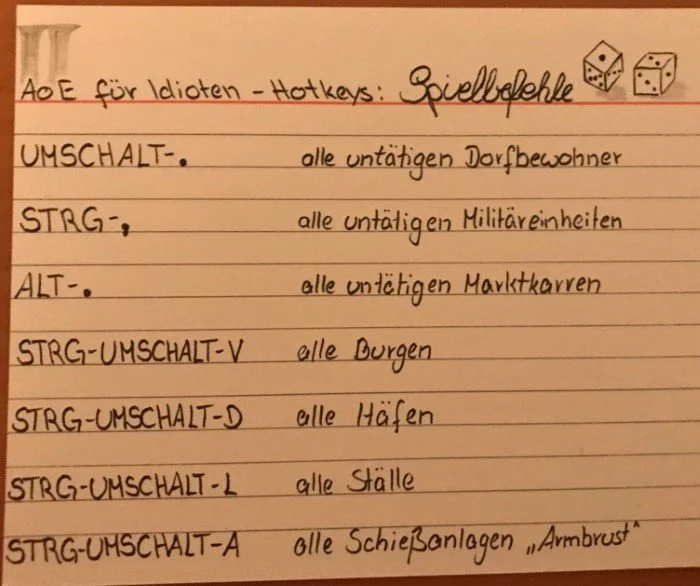 II
AoE für Idioten - Hotkeys: Spielbefehle
UMSCHALT-. alle untätigen Dorfbewohner
STRG-, alle untätigen Militäreinheiten
ALT-. alle untätigen Marktkarren
STRG-UMSCHALT-V alle Burgen
STRG-UMSCHALT-D alle Häfen
STRG-UMSCHALT-L alle Ställe
STRG-UMSCHALT-A alle Schießanlagen „Armbrust“